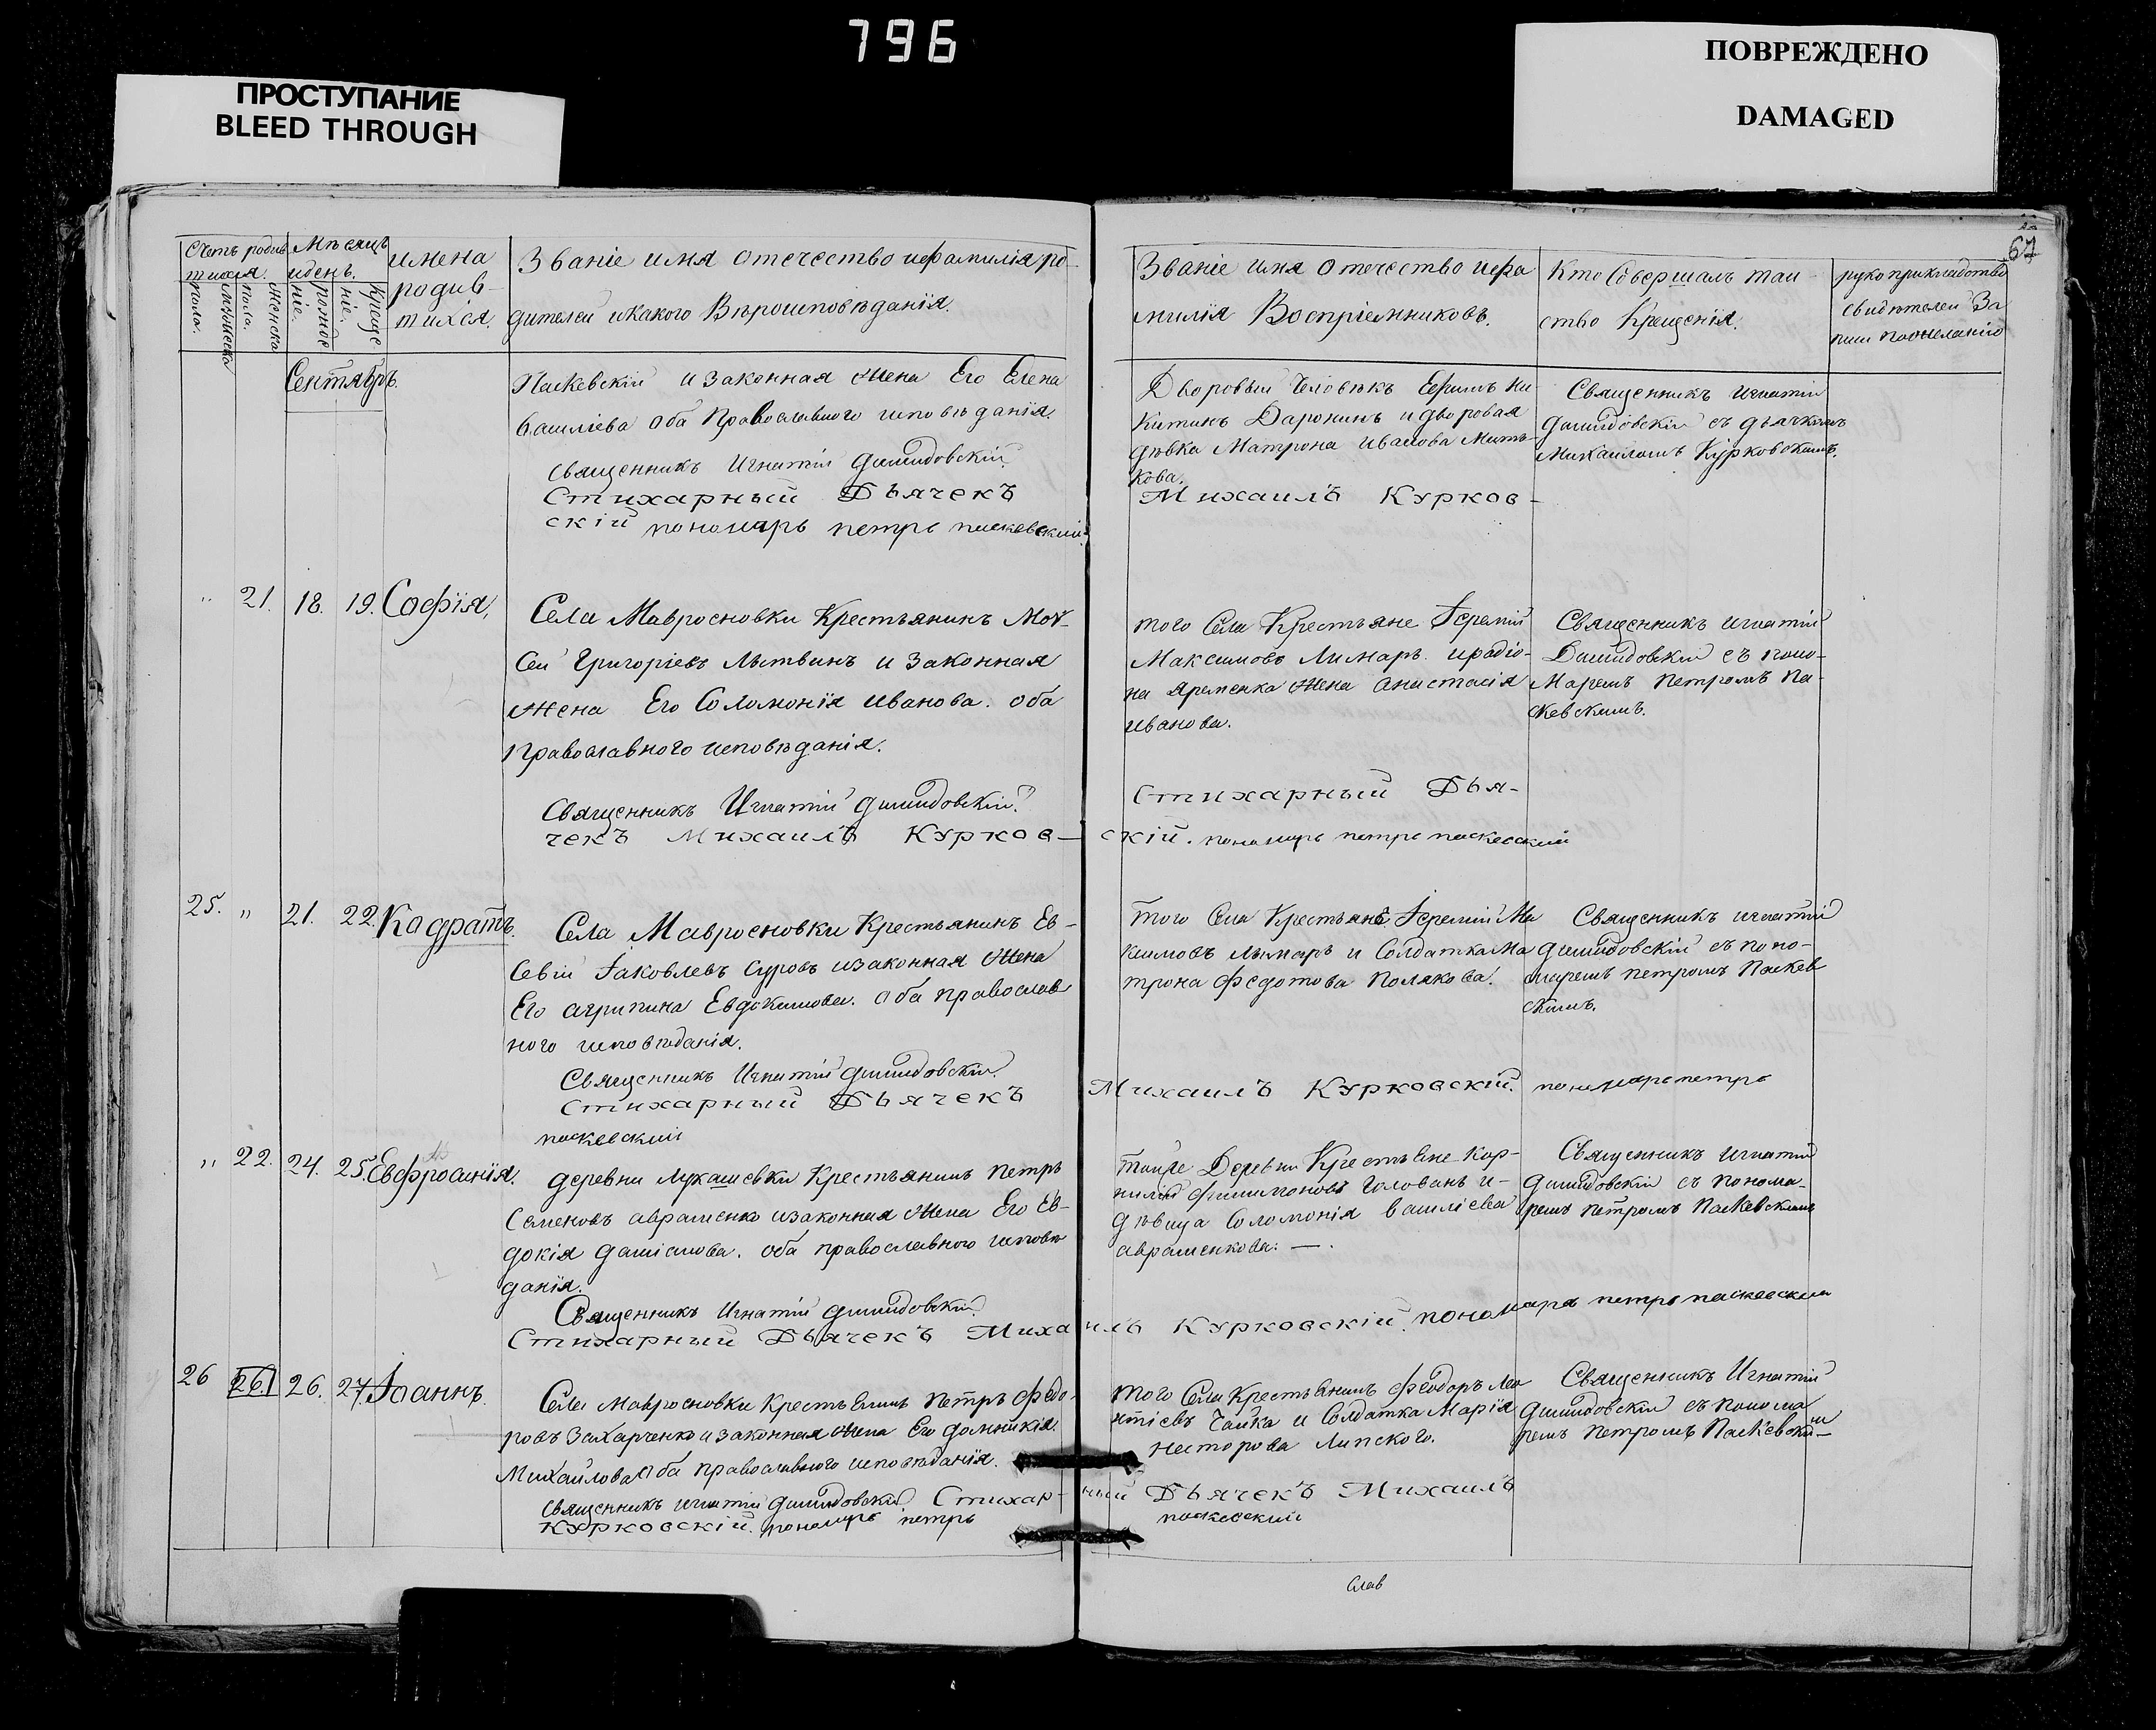 796
ПРОСТУПАНИЕ
BLEED THROUGH
ПОВРЕЖДЕНО
DAMAGED
Счетъ родив
шихся.
Мужеска
пола.
Женска
пола.
Мѣсяцъ
и день.
рожде
ніе.
Креще
ніе.
имена
родив-
шихся.
Званіе имя отечество и фамилія ро-
дителей и какого Вѣроисповѣданія.
Званіе имя отечество и фа
милія Воспріемниковъ.
Кто Совершалъ таи-
ство Крещенія.
рукоприкладство
свидѣтелей За
писи по желанію
62
Сентябръ.
Паскевскій и законная жена Его Елена
василіева оба Православного исповѣданія
священникъ Игнатій
Стихарный Дьячекъ
скій пономарь петръ паскевскій
Дворовый Человѣкъ Ефимъ Ни-
китинъ Даронинъ и дворовая
дѣвка Матрона Иванова Мить-
кова.
Михаилъ Курков-
Священникъ игнатій
съ дьячкомъ
Михаиломъ Курковскимъ.
" 21. 18. 19. Софія,
Села Мавросновки Крестьянинъ Мои-
сей Григоріевъ Лытвинъ и законная
жена Его Соломонія иванова. оба
православного исповѣданія.
Священникъ Игнатій
чекъ Михаилъ Курков-
того Села Крестьяне Іеремій
Максимовъ Лимарь. и радіо-
на Яременка жена анастасія
иванова.
Стихарный Дья-
скій. пономарь петръ паскевский
Священникъ игнатій
съ поно-
маремъ петромъ Па-
скевскимъ.
25. " 21. 22. Кодратъ.
Села Мавросновки Крестьянинъ Ев-
севій Іаковлевъ Суровъ и законная жена
Его агрипина Евдокимова. оба православ
ного исповѣданія.
Священникъ Игнатій
Стихарный Дьячекъ
паскевский
того Села Крестьяне Іеремій Ма
ксимовъ лымарь и Солдатка Ма
трона Федотова Полякова.
Михаилъ Курковскій. пономарь петръ
Священникъ игнатій
съ поно-
маремъ петромъ Паскев
скимъ.
" 22. 24. 25. Евфросинія.
деревни Лукашевки Крестьянинъ Петръ
Семеновъ авраменко и законная жена Его Ев-
докія даніилова. оба православного исповѣ
данія.
Священникъ Игнатій
Стихарный Дьячекъ Миха
тойже Деревни Крестьяне Кор-
нилій Филимоновъ Головань и-
дѣвица Соломонія василіева
авраменкова. —.
илъ Курковскій. пономарь петръ паскевский
Священникъ игнатій
съ понома-
ремъ петромъ Паскевскимъ
26 26. 26. 27. Іоаннъ.
Села Мавросновки Крестьянинъ Петръ Федо-
ровъ Захарченко и законная жена Его домникія
Михайлова оба православного исповѣданія.
священникъ игнатій Стихар-
Курковскій. пономарь петръ
того Села Крестьянинъ Феодоръ Лео
нтіевъ Чайка и Солдатка Марія
несторова Липского.
ный Дьячекъ Михаилъ
паскевский
Священникъ Игнатій
съ понома
ремъ петромъ Паскевски-
Слав